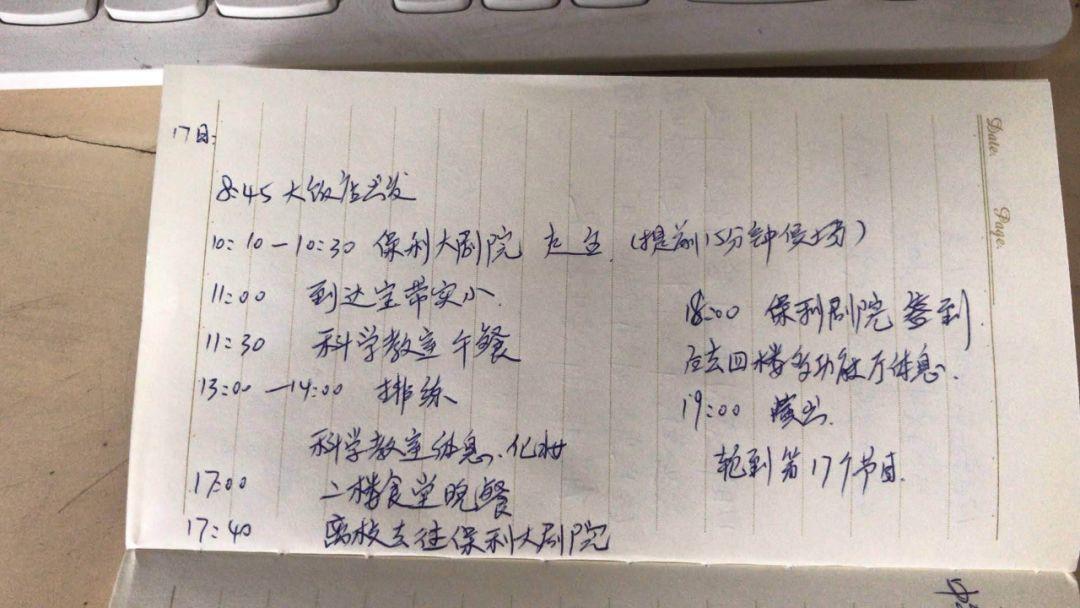 17日:
8:45 大饭店出发
10:10—10:30 保利大剧院 走台 (提前15分钟侯场)
11:00 到达宝带实小
11:30 科学教室午餐
13:00—14:00 排练
科学教室休息、化妆
17:00 二楼食堂晚餐
17:40 离校去往保利大剧院
18:00 保利剧院签到
后去四楼多功能厅休息.
19:00 演出
轮到第17个节目.
Date.
Page.